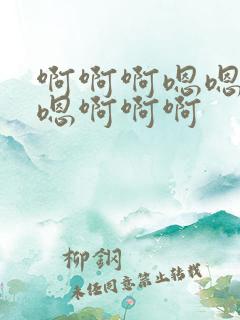 啊啊啊嗯嗯
嗯啊啊啊
柳钢
未经同意禁止转载